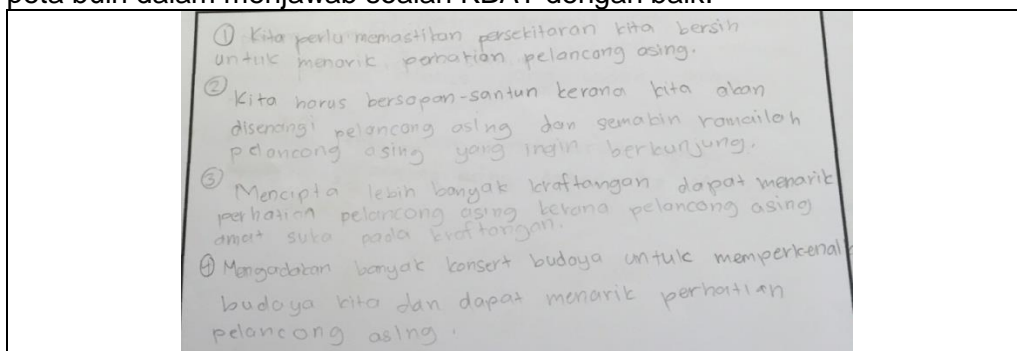 peta buih dalam menjawab soalan KBAT dengan baik.
① Kita perlu memastikan persekitaran kita bersih
untuk menarik perhatian pelancong asing.
② Kita harus bersopan-santun kerana kita akan
disenangi pelancong asing dan semakin ramailah
pelancong asing yang ingin berkunjung.
③ Mencipta lebih banyak kraftangan dapat menarik
perhatian pelancong asing kerana pelancong asing
amat suka pada kraftangan.
④ Mengadakan banyak konsert budaya untuk memperkenal
budaya kita dan dapat menarik perhatian
pelancong asing.